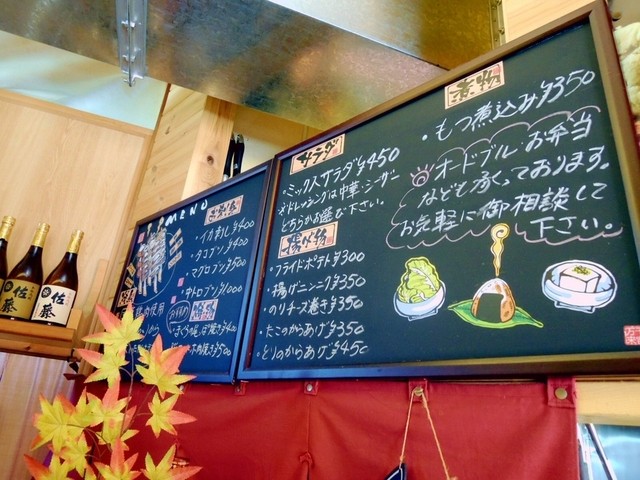 佐藤
佐藤
MENU
お刺身
・イカ刺し ¥400
・タコブツ ¥400
・マグロブツ ¥500
・中トロブツ ¥1000
サラダ
・ミックスサラダ ¥450
※ドレッシングは中華・シーザー
どちらかお選び下さい。
揚げ物
・フライドポテト ¥300
・揚げニンニク ¥350
・のりチーズ巻き ¥350
・たこのからあげ ¥350
・とりのからあげ ¥450
煮物
・もつ煮込み ¥350
◎オードブル・お弁当
なども承っております。
お気軽に御相談して
下さい。